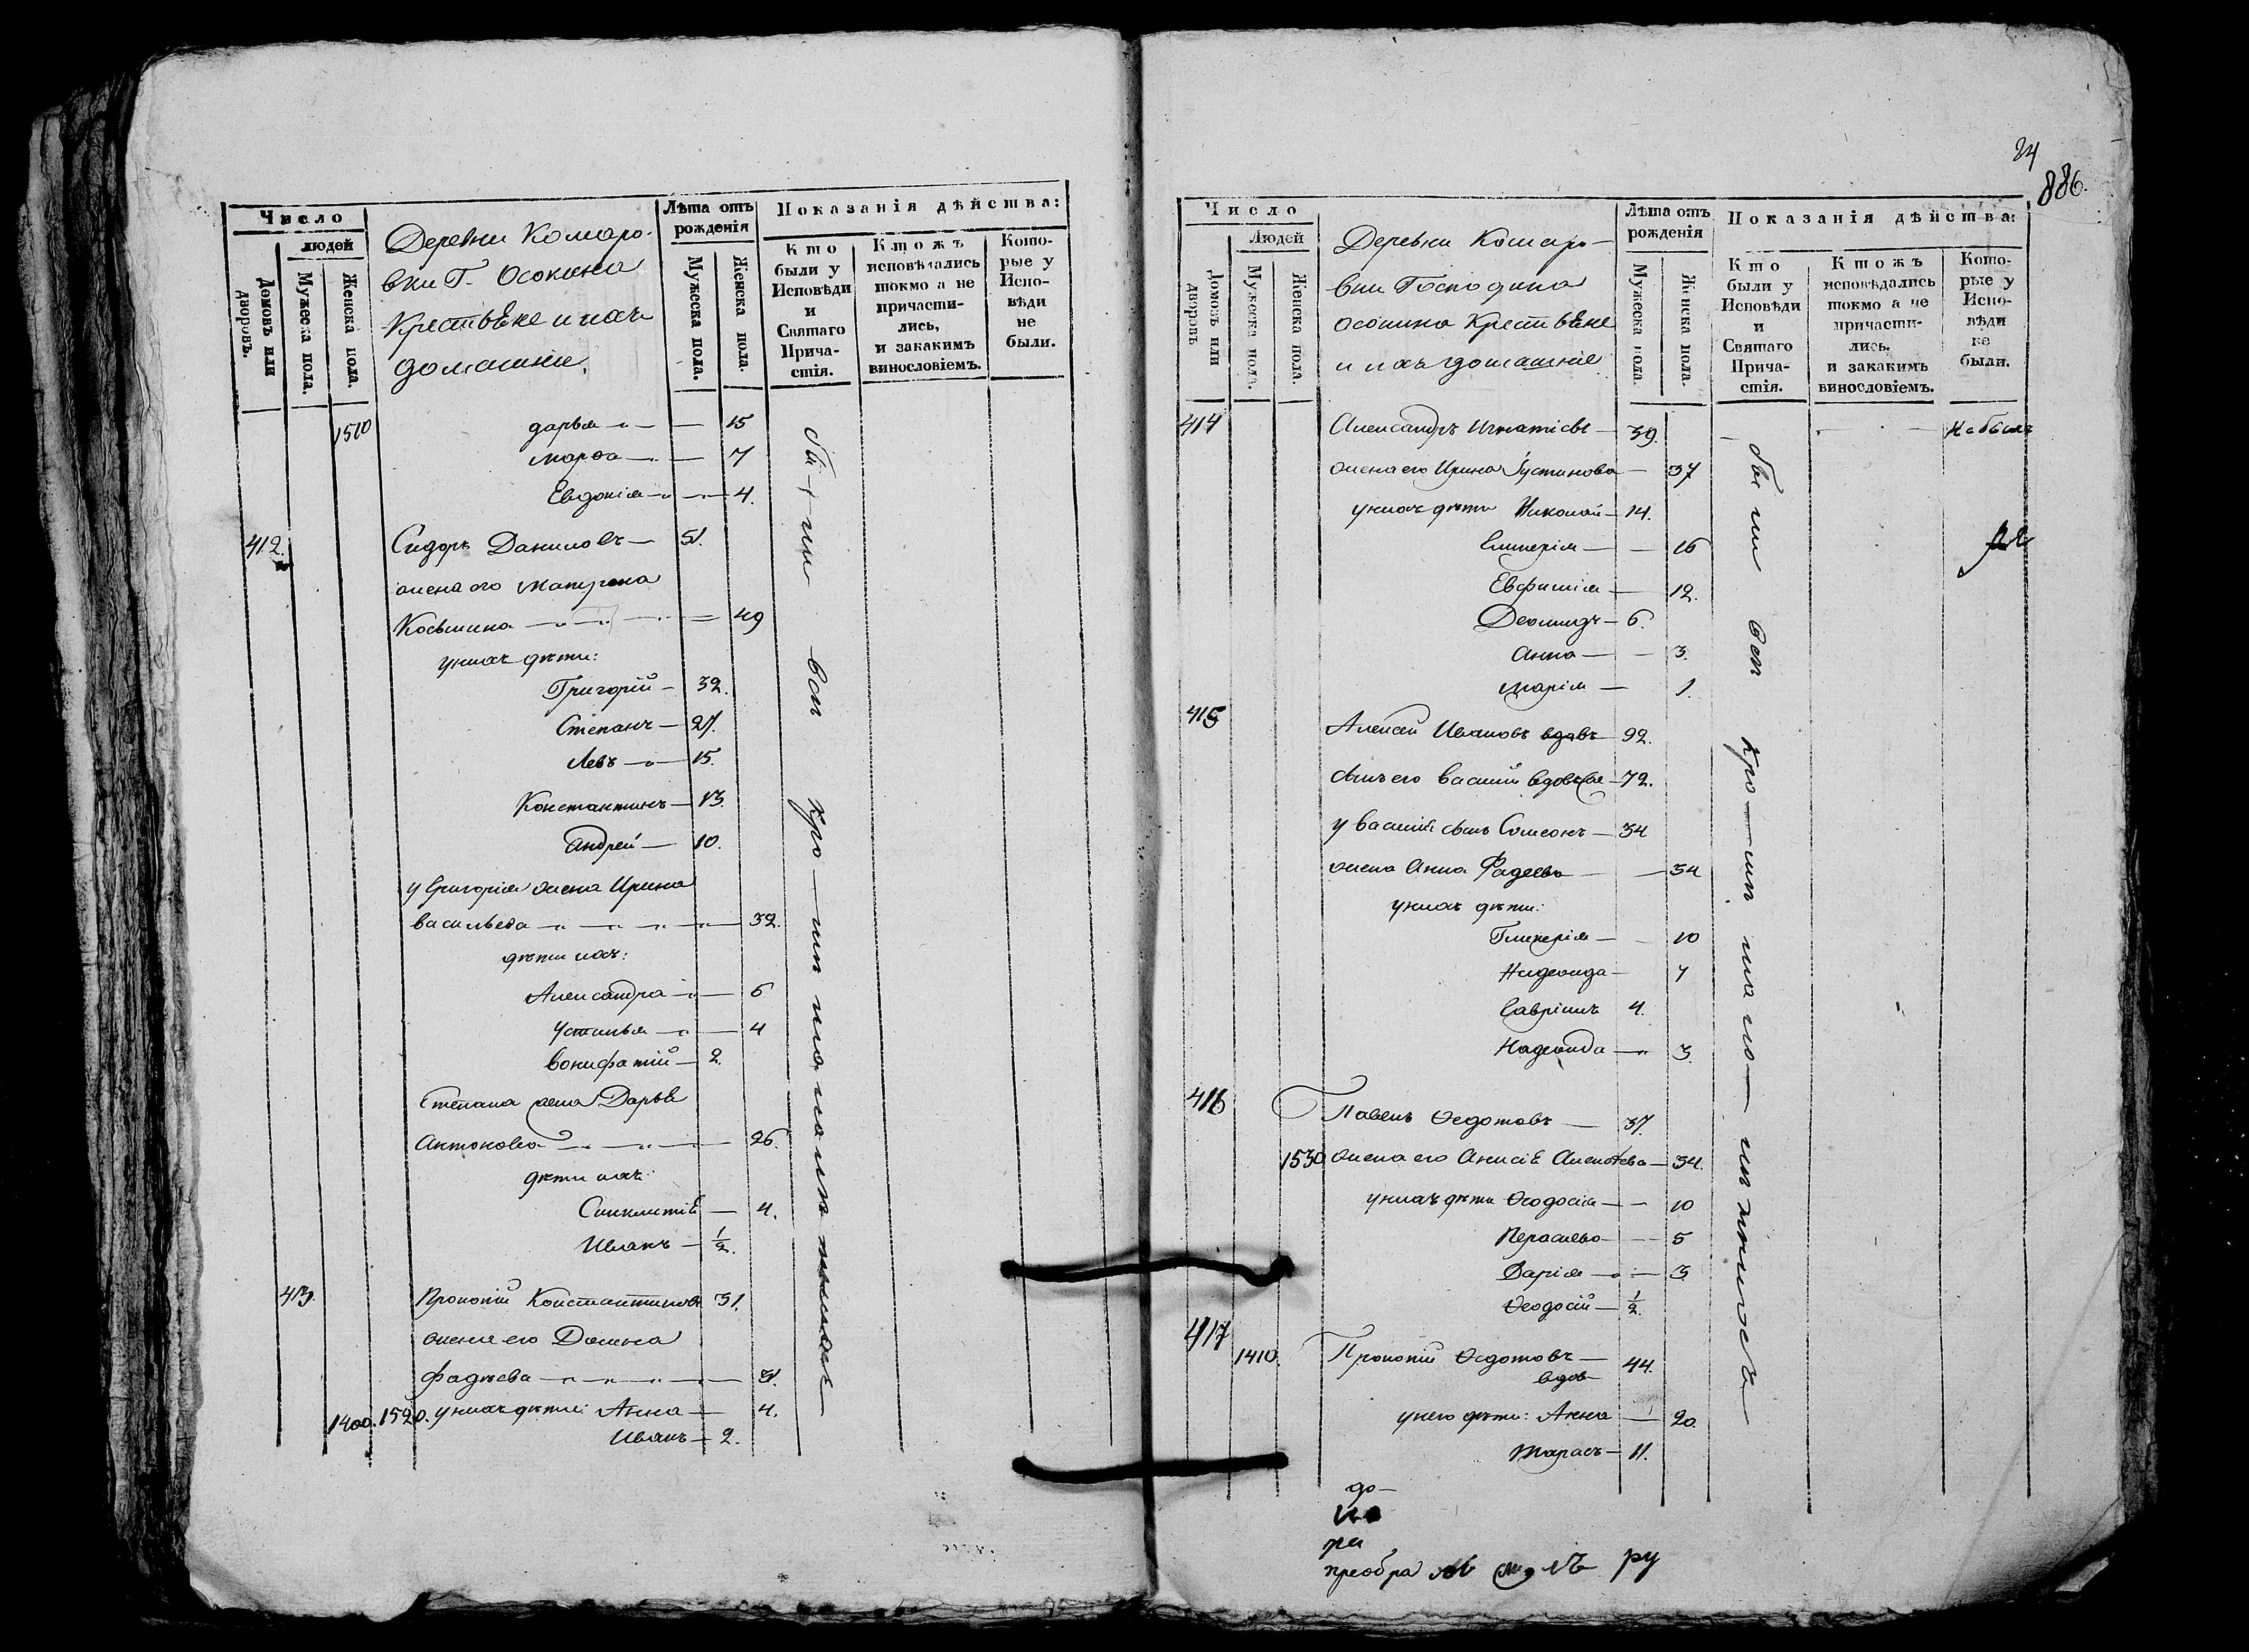 Число
людей
Домовъ или дворовъ.
Мужеска пола.
Женска пола.
Деревни Комаро-
вки Г. Осокина
Крестьѣне и ихъ
домашнiи.
Лѣта отъ рожденiя
Мужеска пола.
Женска пола.
Показанiя дѣйства:
Кто были у Исповѣди и Святаго Прича- стiя.
Ктожъ исповѣдались токмо а не причасти- лись, и закакимъ винословiемъ.
Кото- рые у Испо- вѣди не были.
1510 дарья 15
марфа 7
Евдокiя 4.
412. Сидоръ Даниловъ 51.
жена его матрона
Косьмина 49
у нихъ дѣти:
Григорiй 32.
Степанъ 27.
Левъ 15.
Константинъ 13.
Андрей 10.
у Григорiя жена Ирина
васильева 32.
дѣти ихъ:
Александра 6
Устинья 4
вонифатiй 2.
Степана жена Дарья
Антонова 26.
дѣти ихъ:
Синклитiя 4.
Иванъ 1/2.
413. Прокопiй Константиновъ 31.
жена его Домна
фадѣева 31.
1400. 1520. у нихъ дѣти: Анна 4.
Иванъ 2.
бы ли всѣ кро мѣ
24
886.
Число
Людей
Домовъ или дворовъ
Мужеска пола.
Женска пола.
Деревни Комаро-
вки Господина
осокина Крестьѣне
и ихъ домашнiе
Лѣта отъ рожденiя
Мужеска пола.
Женска пола.
Показанiя дѣйства:
Кто были у Исповѣди и Святаго Прича- стiя.
Ктожъ исповѣдались токмо а не причасти- лись. и закакимъ винословiемъ.
Кото- рые у Испо- вѣди не были.
414 Александръ Игнатiевъ 39. Не былъ
жена его Ирина Густинова 37
у нихъ дѣти Николай 14.
Гликерiя 16
Евфимiя 12.
Деомидъ 6.
Анна 3.
марiя 1.
415 Алексѣй Ивановъ вдовъ 92.
сынъ его васiлiй вдовъ 72.
у васiлiя сынъ Симеонъ 34
жена Анна Фадеева 34
у нихъ дѣти:
Гликерiя 10
Надежда 7
Гаврiилъ 4.
Надежда 3.
416 Павелъ Федотовъ 37.
1530 жена его Анисiя Алексѣева 34.
у нихъ дѣти Феодосiя 10
Парасева 5
Дарiя 3
Феодосiй 1/2.
417 1410. Прокопiй Федотовъ 44.
вдов
у него дѣти: Анна 20.
Тарасъ 11.
бы ли всѣ кро мѣ
до-
ра
преобра ру